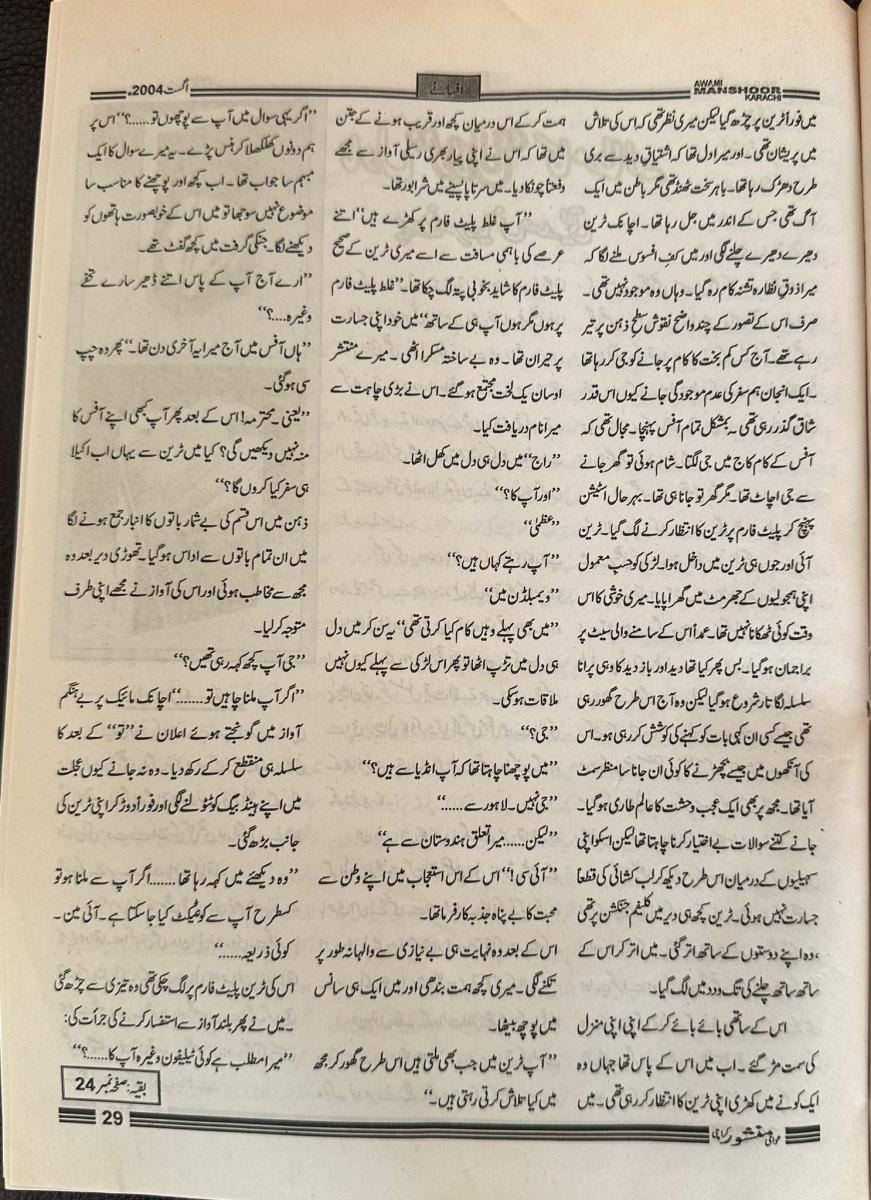 اگست 2004ء
افسانے
AWAMI
MANSHOOR
KARACHI
میں فوراً ٹرین پر چڑھ گیا لیکن میری نظر تھی کہ اس کی تلاش
میں پریشان تھی ۔ اور میرا دل تھا کہ اشتیاقِ دید سے بری
طرح دھڑک رہا تھا۔ باہر سخت ٹھنڈ تھی مگر باطن میں ایک
آگ تھی جس کے اندر میں جل رہا تھا۔ اچانک ٹرین
دھیرے دھیرے چلنے لگی اور میں کفِ افسوس ملنے لگا کہ
میرا ذوقِ نظارہ تشنہ کام رہ گیا۔ وہاں وہ موجود نہیں تھی ۔
صرف اس کے تصور کے چند واضح نقوش سطح ذہن پر تیر
رہے تھے۔ آج کس کم بخت کا کام پر جانے کو جی کر رہا تھا
۔ ایک انجان ہم سفر کی عدم موجودگی جانے کیوں اس قدر
شاق گذر رہی تھی ۔ بمشکل تمام آفس پہنچا۔ مجال تھی کہ
آفس کے کام کاج میں جی لگتا۔ شام ہوئی تو گھر جانے
سے جی اچاٹ تھا۔ مگر گھر تو جانا ہی تھا۔ بہر حال اسٹیشن
پہنچ کر پلیٹ فارم پر ٹرین کا انتظار کرنے لگ گیا۔ ٹرین
آئی اور جوں ہی ٹرین میں داخل ہوا۔ لڑکی کو حسبِ معمول
اپنی ہمجولیوں کے جھرمٹ میں گھرا پایا۔ میری خوشی کا اس
وقت کوئی ٹھکانا نہیں تھا۔ عمداً اس کے سامنے والی سیٹ پر
براجمان ہو گیا۔ بس پھر کیا تھا دید اور باز دید کا وہی پرانا
سلسلہ لگا تار شروع ہو گیا لیکن وہ آج اس طرح گھور رہی
تھی جیسے کسی ان کہی بات کو کہنے کی کوشش کر رہی ہو۔ اس
کی آنکھوں میں جیسے بچھڑنے کا کوئی ان جانا سا منظر سمٹ
آیا تھا۔ مجھ پر بھی ایک عجب وحشت کا عالم طاری ہو گیا۔
جانے کتنے سوالات بے اختیار کرنا چاہتا تھا لیکن اسکو اپنی
سہیلیوں کے درمیان اس طرح دیکھ کر لب کشائی کی قطعاً
جسارت نہیں ہوئی۔ ٹرین کچھ ہی دیر میں کلیفم جنکشن پر تھی
،وہ اپنے دوستوں کے ساتھ اتر گئی۔ میں اتر کر اس کے
ساتھ ساتھ چلنے کی تگ و دد میں لگ گیا۔
اس کے ساتھی بائے بائے کر کے اپنی اپنی منزل
کی سمت مڑ گئے ۔ اب میں اس کے پاس تھا جہاں وہ
ایک کونے میں کھڑی اپنی ٹرین کا انتظار کر رہی تھی۔ میں
ہمت کر کے اس درمیان کچھ اور قریب ہونے کے جتن
میں تھا کہ اس نے اپنی پیار بھری رسیلی آواز سے مجھے
دفعتاً چونکا دیا۔ میں سرتا پا پسینے میں شرابور تھا۔
’’آپ غلط پلیٹ فارم پر کھڑے ہیں‘‘ اتنے
عرصے کی باہمی مسافت سے اسے میری ٹرین کے صحیح
پلیٹ فارم کا شاید بخوبی پتہ لگ چکا تھا۔’’غلط پلیٹ فارم
پر ہوں مگر ہوں آپ ہی کے ساتھ‘‘ میں خود اپنی جسارت
پر حیران تھا ۔ وہ بے ساختہ مسکرا اٹھی ۔ میرے منتشر
اوسان یک لخت مجتمع ہو گئے ۔ اس نے بڑی چاہت سے
میرا نام دریافت کیا۔
’’راج‘‘ میں دل ہی دل میں کھل اٹھا۔
’’اور آپ کا؟‘‘
’’عظمیٰ‘‘
’’آپ رہتے کہاں ہیں؟‘‘
’’ویمبلڈن میں‘‘
’’میں بھی پہلے وہیں کام کیا کرتی تھی‘‘ یہ سن کر میں دل
ہی دل میں تڑپ اٹھا تو پھر اس لڑکی سے پہلے کیوں نہیں
ملاقات ہو سکی۔
’’جی؟‘‘
’’میں پوچھنا چاہتا تھا کہ آپ انڈیا سے ہیں؟‘‘
’’جی نہیں۔ لاہور سے......‘‘
’’لیکن......میرا تعلق ہندوستان سے ہے‘‘
’’آئی سی!‘‘ اس کے اس استعجاب میں اپنے وطن سے
محبت کا بے پناہ جذبہ کارفرما تھا۔
اس کے بعد وہ نہایت ہی بے نیازی سے والہانہ طور پر
تکنے لگی ۔ میری کچھ ہمت بندھی اور میں ایک ہی سانس
میں پوچھ بیٹھا۔
’’آپ ٹرین میں جب بھی ملتی ہیں اس طرح گھور کر مجھ
میں کیا تلاش کرتی رہتی ہیں۔‘‘
’’اگر یہی سوال میں آپ سے پوچھوں تو......؟‘‘ اس پر
ہم دونوں کھلکھلا کر ہنس پڑے ۔ یہ میرے سوال کا ایک
مبہم سا جواب تھا ۔ اب کچھ اور پوچھنے کا مناسب سا
موضوع نہیں سوجھا تو میں اس کے خوبصورت ہاتھوں کو
دیکھنے لگا۔ جنکی گرفت میں کچھ گفٹ تھے۔
’’ارے آج آپ کے پاس اتنے ڈھیر سارے تحفے
وغیرہ....؟‘‘
’’ہاں آفس میں آج میرا یہ آخری دن تھا۔‘‘ پھر وہ چپ
سی ہو گئی۔
’’یعنی ۔ محترمہ! اس کے بعد پھر آپ کبھی اپنے آفس کا
منہ نہیں دیکھیں گی؟ کیا میں ٹرین سے یہاں اب اکیلا
ہی سفر کیا کروں گا؟‘‘
ذہن میں اس قسم کی بے شمار باتوں کا انبار جمع ہونے لگا
میں ان تمام باتوں سے اداس ہو گیا۔ تھوڑی دیر بعد وہ
مجھ سے مخاطب ہوئی اور اس کی آواز نے مجھے اپنی طرف
متوجہ کر لیا۔
’’جی آپ کچھ کہہ رہی تھیں؟‘‘
’’اگر آپ ملنا چاہیں تو......‘‘ اچانک مائیک پر بے ہنگم
آواز میں گونجتے ہوئے اعلان نے ’’تو‘‘ کے بعد کا
سلسلہ ہی منقطع کر کے رکھ دیا۔ وہ نہ جانے کیوں عجلت
میں اپنے ہینڈ بیگ کو ٹٹولنے لگی اور فوراً دوڑ کر اپنی ٹرین کی
جانب بڑھ گئی۔
’’وہ دیکھئے میں کہہ رہا تھا ......اگر آپ سے ملنا ہو تو
کسطرح آپ سے کونٹیکٹ کیا جا سکتا ہے۔ آئی مین ۔
کوئی ذریعہ......‘‘
اس کی ٹرین پلیٹ فارم پر لگ چکی تھی وہ تیزی سے چڑھ گئی
۔ میں نے پھر بلند آواز سے استفسار کرنے کی جرأت کی:
’’میرا مطلب ہے کوئی ٹیلیفون وغیرہ آپ کا......؟‘‘
بقیہ: صفحہ نمبر 24
29
عوامی منشور کراچی